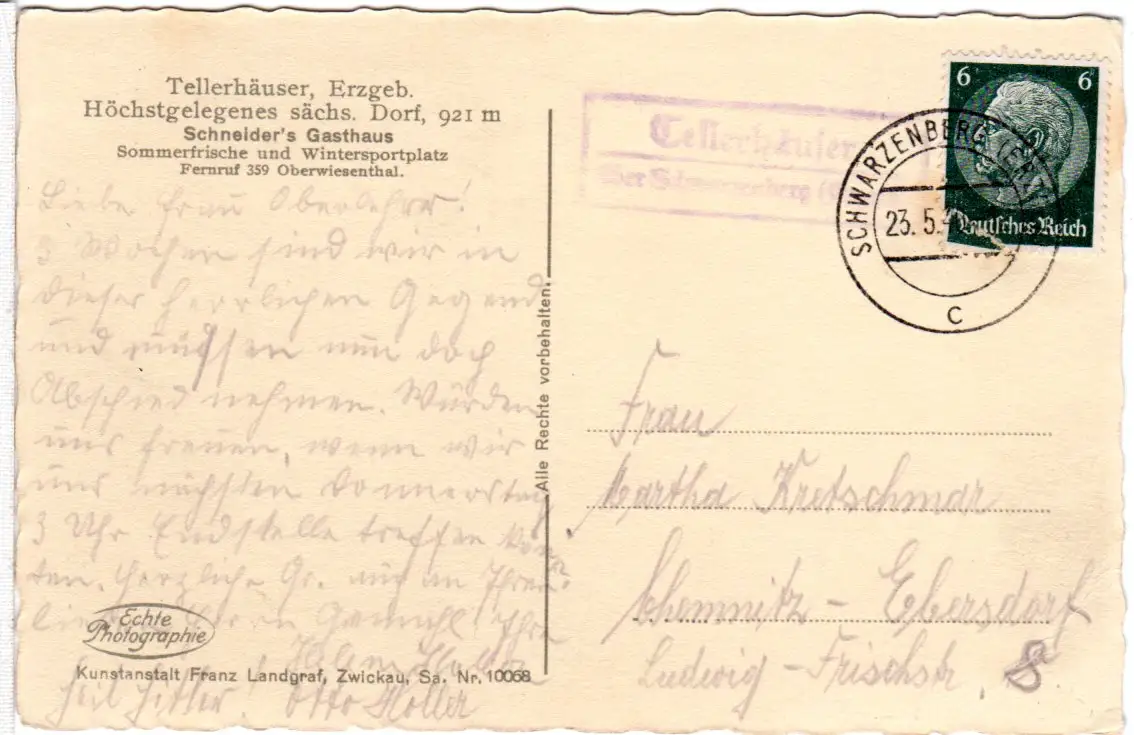 Tellerhäuser, Erzgeb.
Höchstgelegenes sächs. Dorf, 921 m
Schneider's Gasthaus
Sommerfrische und Wintersportplatz
Fernruf 359 Oberwiesenthal.
Liebe Frau Oberlehrer!
3 Wochen sind wir in
dieser herrlichen Gegend
und müssen nun doch
Abschied nehmen. Würden
uns freuen, wenn wir
uns nächsten Donnerstag
3 Uhr Endstelle treffen könn-
ten. Herzliche Gr. auch an Ihren
lieben Herrn Gemahl Ihre
Heil Hitler! Otto Holler
Echte
Photographie
Kunstanstalt Franz Landgraf, Zwickau, Sa. Nr. 10068
Alle Rechte vorbehalten.
Tellerhäuser
über Schwarzenberg
SCHWARZENBERG (ERZ
23. 5.
c
6 6
Deutsches Reich
Frau
Martha Kretschmar
Chemnitz - Ebersdorf
Ludwig-Frischstr. 8